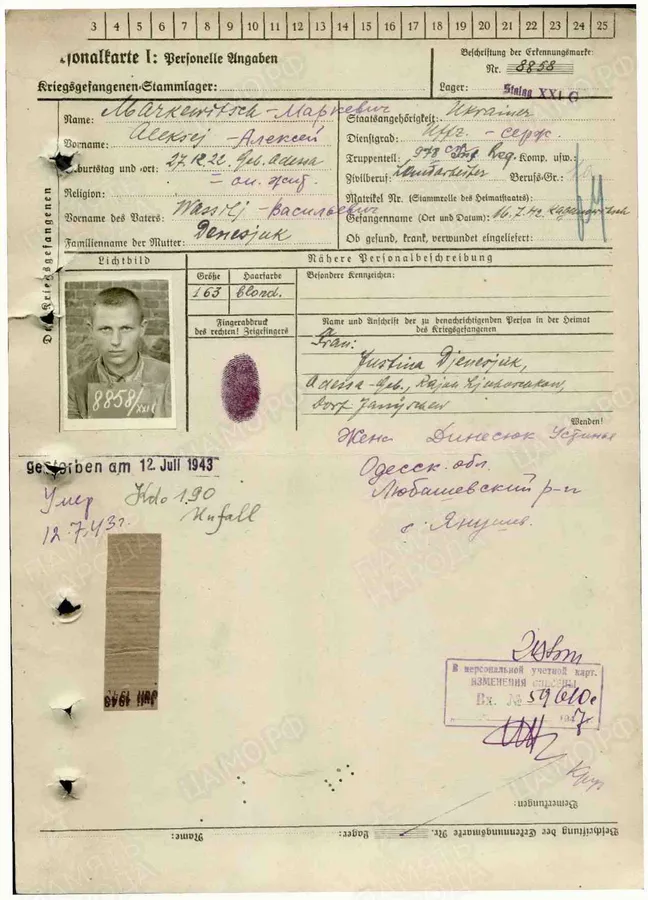 3 4 5 6 7 8 9 10 11 12 13 14 15 16 17 18 19 20 21 22 23 24 25
onalkarte I: Personelle Angaben
Beschriftung der Erkennungsmarke:
Nr. 8858
Kriegsgefangenen-Stammlager:
Lager: Stalag XXI C
Des Kriegsgefangenen
Name: Markewitsch - Маркевич
Staatsangehörigkeit: Ukrainer
Vorname: Aleksej - Алексей
Dienstgrad: Uffz. - серж.
Geburtstag und -ort: 27.12.22. Geb. Adessa
Truppenteil: 978 Reg. Komp. usw.:
Zivilberuf: Landarbeiter Berufs-Gr.:
Religion:
Matrikel Nr. (Stammrolle des Heimatstaates):
Vorname des Vaters: Wassilij - Васильевич
Gefangenname (Ort und Datum): 06.7.42.
Familienname der Mutter: Denesjuk
Ob gesund, krank, verwundet eingeliefert:
Lichtbild
Nähere Personalbeschreibung
Größe Haarfarbe
163 blond.
Besondere Kennzeichen:
Fingerabdruck
des rechten! Zeigefingers
Name und Anschrift der zu benachrichtigenden Person in der Heimat
des Kriegsgefangenen
Frau:
Justina Djenesjuk,
Adessa-Geb., Rajon
Dorf
8858/XXI C
Wenden!
Жена Динесюк Устинья
Одесск. обл.
Любашевский р-н
с. Янушев.
gestorben am 12. Juli 1943
Умер
12.7.43г.
Kdo 190
Unfall
Juli 1943
В персональной учетной карт.
ИЗМЕНЕНИЯ ВНЕСЕНЫ
Вх. № 59610с
1947
Bemerkungen:
Beschriftung der Erkennungsmarke Nr. Lager: Name: